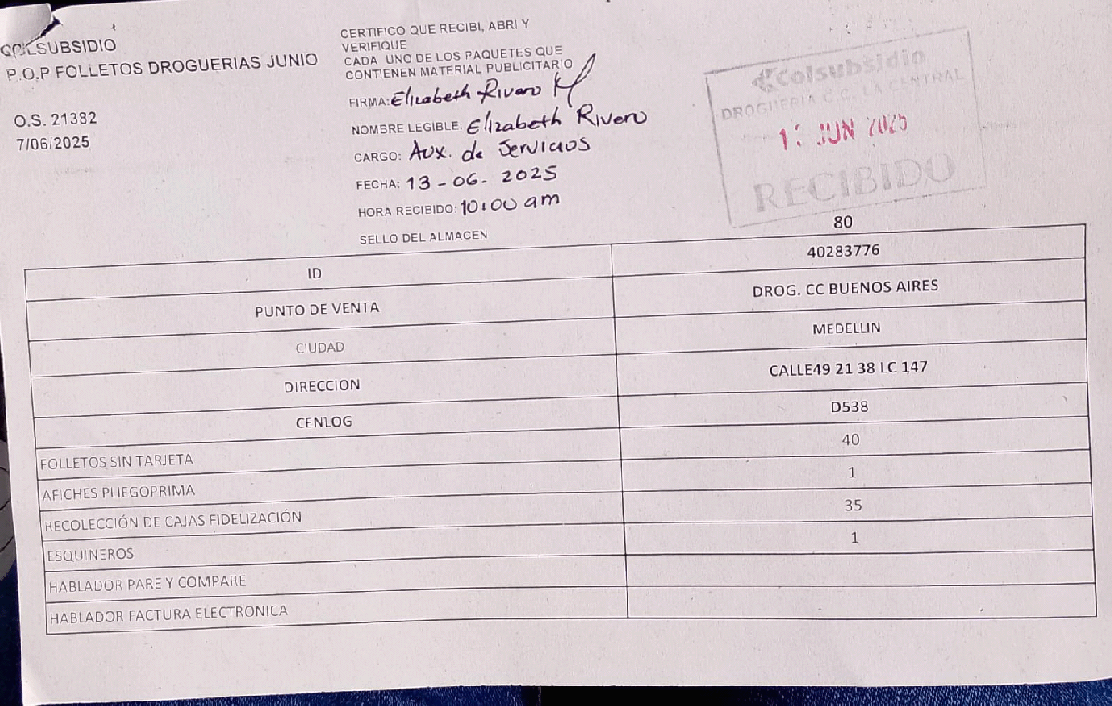 COLSUBSIDIO
P.O.P FOLLETOS DROGUERIAS JUNIO
O.S. 21382
7/06/2025
CERTIFICO QUE RECIBI, ABRI Y
VERIFIQUE
CADA UNO DE LOS PAQUETES QUE
CONTENEN MATERIAL PUBLICITARIO
FIRMA: Elizabeth Rivero
NOMBRE LEGIBLE: Elizabeth Rivero
CARGO: Aux. de Servicios
FECHA: 13-06-2025
HORA RECIBIDO: 10:00 am
SELLO DEL ALMACEN
Colsubsidio
DROGUERIA C.C. LA CENTRAL
JUN 2025
RECIBIDO
80
ID 40283776
PUNTO DE VENTA DROG. CC BUENOS AIRES
CIUDAD MEDELLIN
DIRECCION CALLE49 21 38 LC 147
CENLOG D538
FOLLETOS SIN TARJETA 40
AFICHES PLIEGOPRIMA 1
RECOLECCIÓN DE CAJAS FIDELIZACION 35
ESQUINEROS 1
HABLADOR PARE Y COMPARE
HABLADOR FACTURA ELECTRONICA